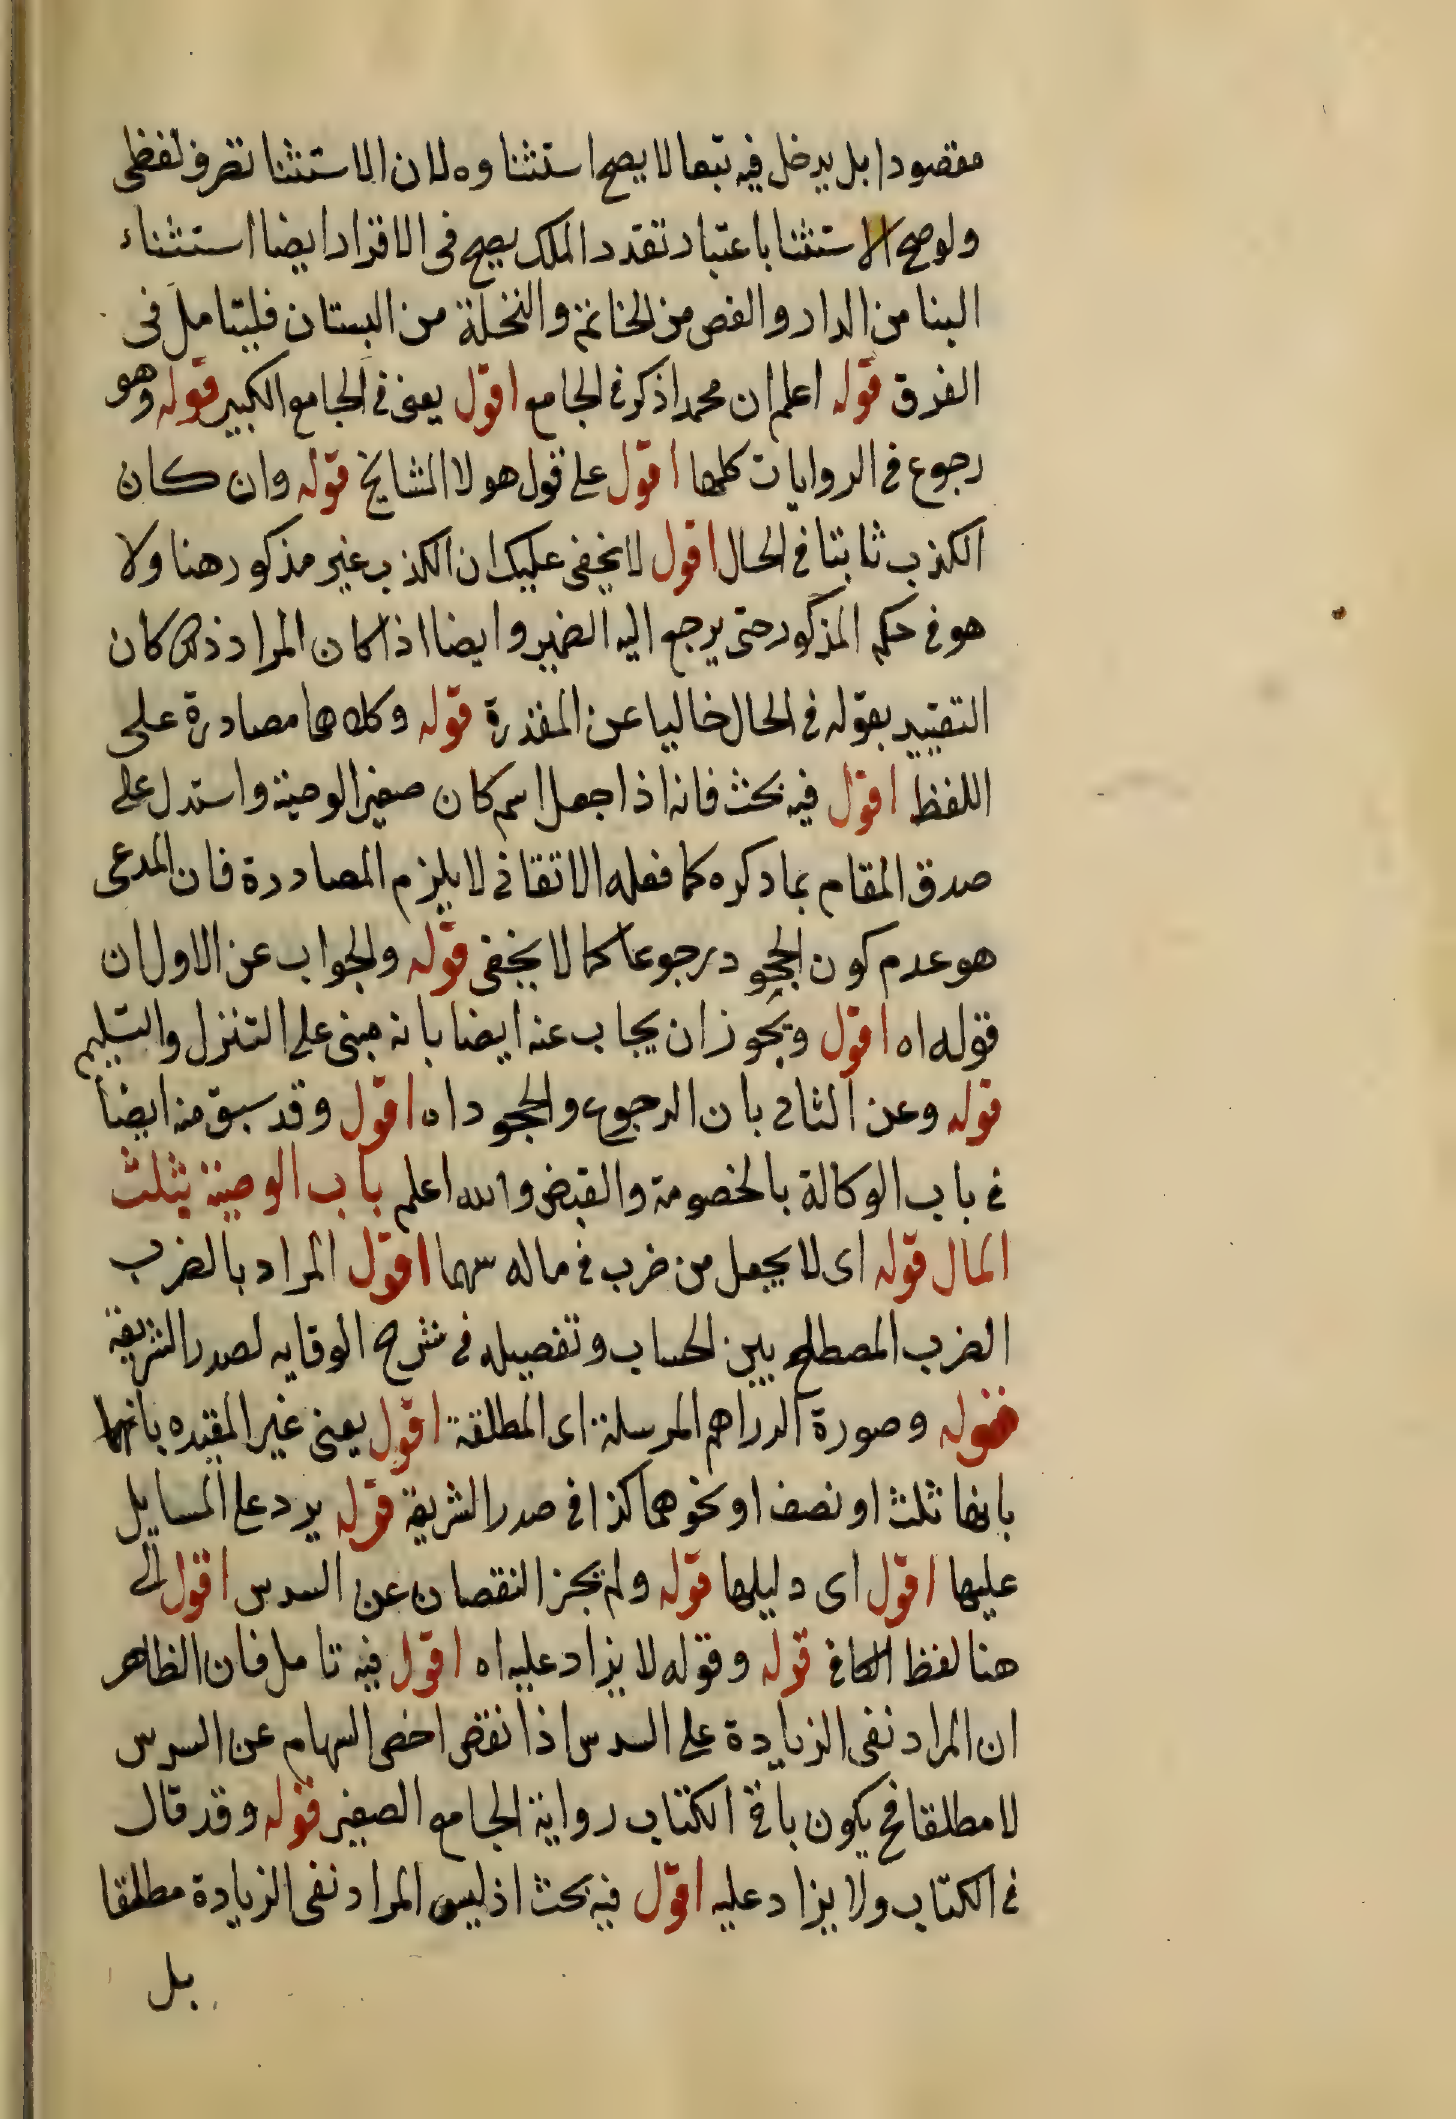 مقصودا بل يدخل فيه تبعا لا يصح استثناوه لان الاستثنا تصرف لفظى
ولو صح الاستثنا باعتبار تعدد الملك يصح فى الاقرار ايضا استثناء
البنا من الدار والفص من الخاتم والنخلة من البستان فليتامل فى
الفرق قوله اعلم ان محمدا ذكر فى الجامع اقول يعنى فى الجامع الكبير قوله وهو
رجوع فى الروايات كلها اقول على قول هولا المشايخ قوله وان كان
الكذب ثابتا فى الحال اقول لا يخفى عليك ان الكذب غير مذكور هنا ولا
هو فى حكم المذكور حتى يرجع اليه الضمير وايضا اذا كان المراد ذلك كان
التقييد بقوله فى الحال خاليا عن المقدرة قوله وكلاهما مصادرة على
اللفظ اقول فيه بحث فانه اذا جعل اسم كان صغير الوصية واستدل على
صدق المقام بما دكره كما فعله الاتقانى لا يلزم المصادرة فان المدعى
هو عدم كون الجحود رجوعا كما لا يخفى قوله والجواب عن الاول ان
قوله اه اقول ويجوز ان يجاب عنه ايضا بانه مبنى على التنزل والتسليم
قوله وعن الثانى بان الرجوع والجحود اه اقول وقد سبق منه ايضا
فى باب الوكالة بالخصومة والقبض والله اعلم باب الوصية بثلث
المال قوله اى لا يجعل من ضرب فى ماله سهما اقول المراد بالضرب
الضرب المصطلح بين الحساب وتفصيله فى شرح الوقايه لصدر الشريعة
قوله وصورة الدراهم المرسلة اى المطلقة اقول يعنى غير المقيده بانهما
بانها ثلث او نصف او نحوهما كذا فى صدر الشريعة قوله يرد على المسايل
عليها اقول اى دليلها قوله ولم يجز النقصان عن السدس اقول الى
هنا لفظ الكافى قوله وقوله لا يزاد عليه اه اقول فيه تامل فان الظاهر
ان المراد نفى الزيادة على السدس اذا نقص اخس السهام عن السدس
لا مطلقا فح يكون باقى الكتاب رواية الجامع الصغير قوله وقد قال
فى الكتاب ولا يزاد عليه اقول فيه بحث اذ ليس المراد نفى الزيادة مطلقا
بل